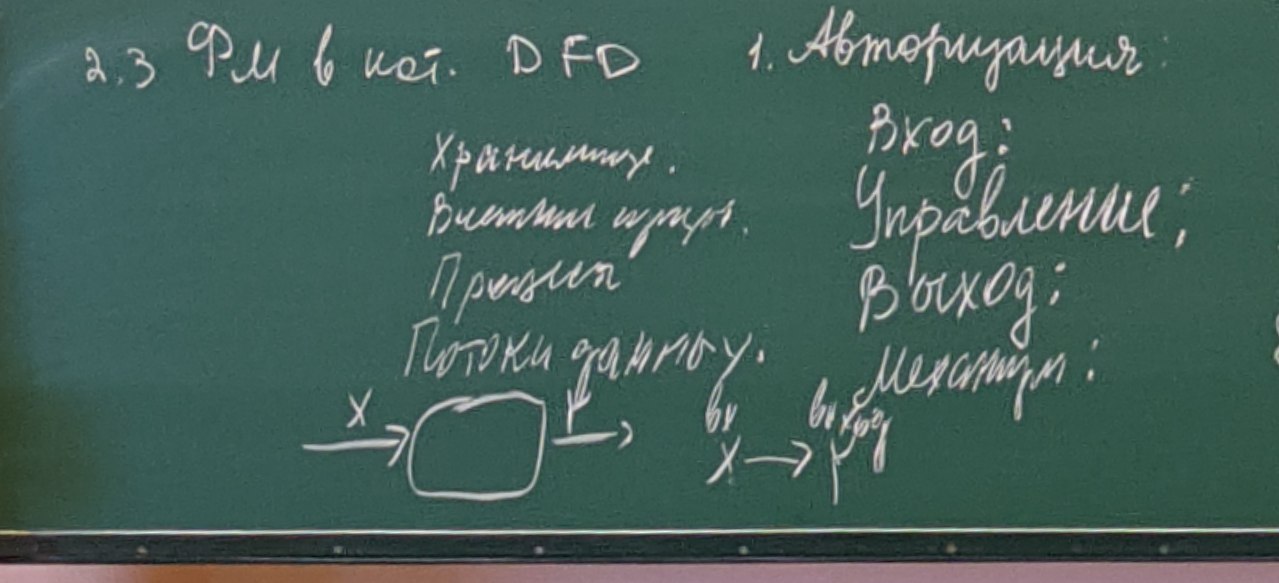 2.3 ФМ в нот. DFD
Хранилище.
Внешние сущн.
Процесс
Потоки данных.
X
Y
1. Авторизация:
Вход:
Управление:
Выход:
Механизм:
вх выход
X → Y